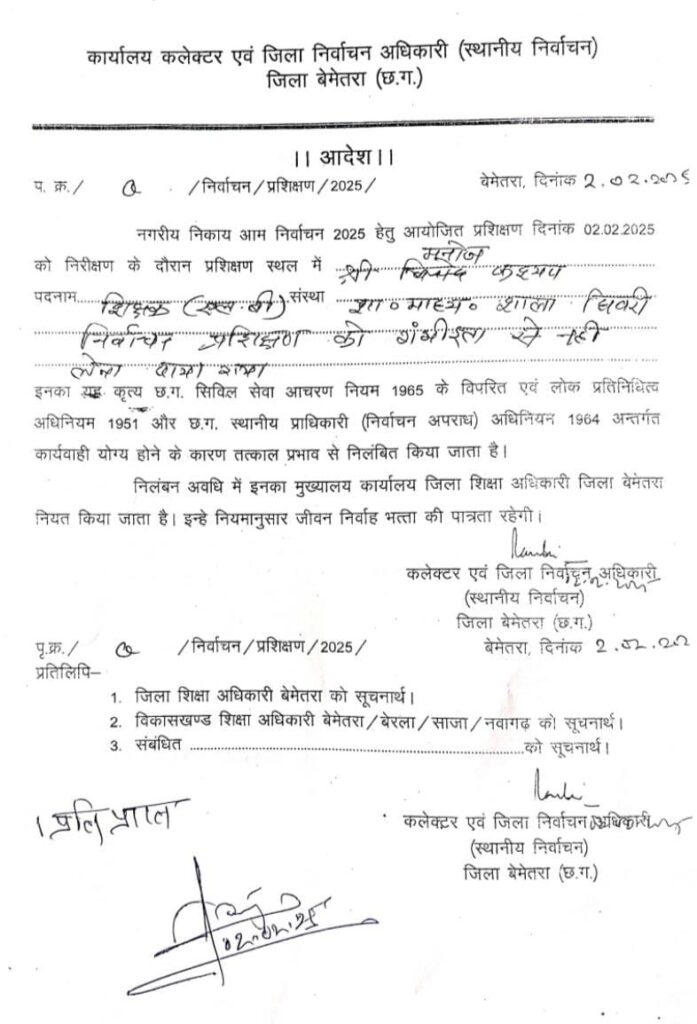 कार्यालय कलेक्टर एवं जिला निर्वाचन अधिकारी (स्थानीय निर्वाचन)
जिला बेमेतरा (छ.ग.)
।। आदेश।।
प. क्र./ /निर्वाचन/प्रशिक्षण/2025/ बेमेतरा, दिनांक 2.02.2025
नगरीय निकाय आम निर्वाचन 2025 हेतु आयोजित प्रशिक्षण दिनांक 02.02.2025
मनोज
को निरीक्षण के दौरान प्रशिक्षण स्थल में श्री कश्यप
पदनाम शिक्षक (एल.बी) संस्था शा० माध्य० शाला
निर्वाचन प्रशिक्षण को गंभीरता से नही
लेना पाया गया
इनका यह कृत्य छ.ग. सिविल सेवा आचरण नियम 1965 के विपरित एवं लोक प्रतिनिधित्व
अधिनियम 1951 और छ.ग. स्थानीय प्राधिकारी (निर्वाचन अपराध) अधिनियन 1964 अन्तर्गत
कार्यवाही योग्य होने के कारण तत्काल प्रभाव से निलंबित किया जाता है।
निलंबन अवधि में इनका मुख्यालय कार्यालय जिला शिक्षा अधिकारी जिला बेमेतरा
नियत किया जाता है। इन्हे नियमानुसार जीवन निर्वाह भत्ता की पात्रता रहेगी।
कलेक्टर एवं जिला निर्वाचन अधिकारी
(स्थानीय निर्वाचन)
जिला बेमेतरा (छ.ग.)
पृ.क्र./ /निर्वाचन/प्रशिक्षण/2025/ बेमेतरा, दिनांक 2.02.202
प्रतिलिपि–
1. जिला शिक्षा अधिकारी बेमेतरा को सूचनार्थ।
2. विकासखण्ड शिक्षा अधिकारी बेमेतरा/बेरला/साजा/नवागढ़ को सूचनार्थ।
3. संबंधित ........................................को सूचनार्थ।
कलेक्टर एवं जिला निर्वाचन अधिकारी
(स्थानीय निर्वाचन)
जिला बेमेतरा (छ.ग.)
1 प्रति प्राप्त
02.02.25